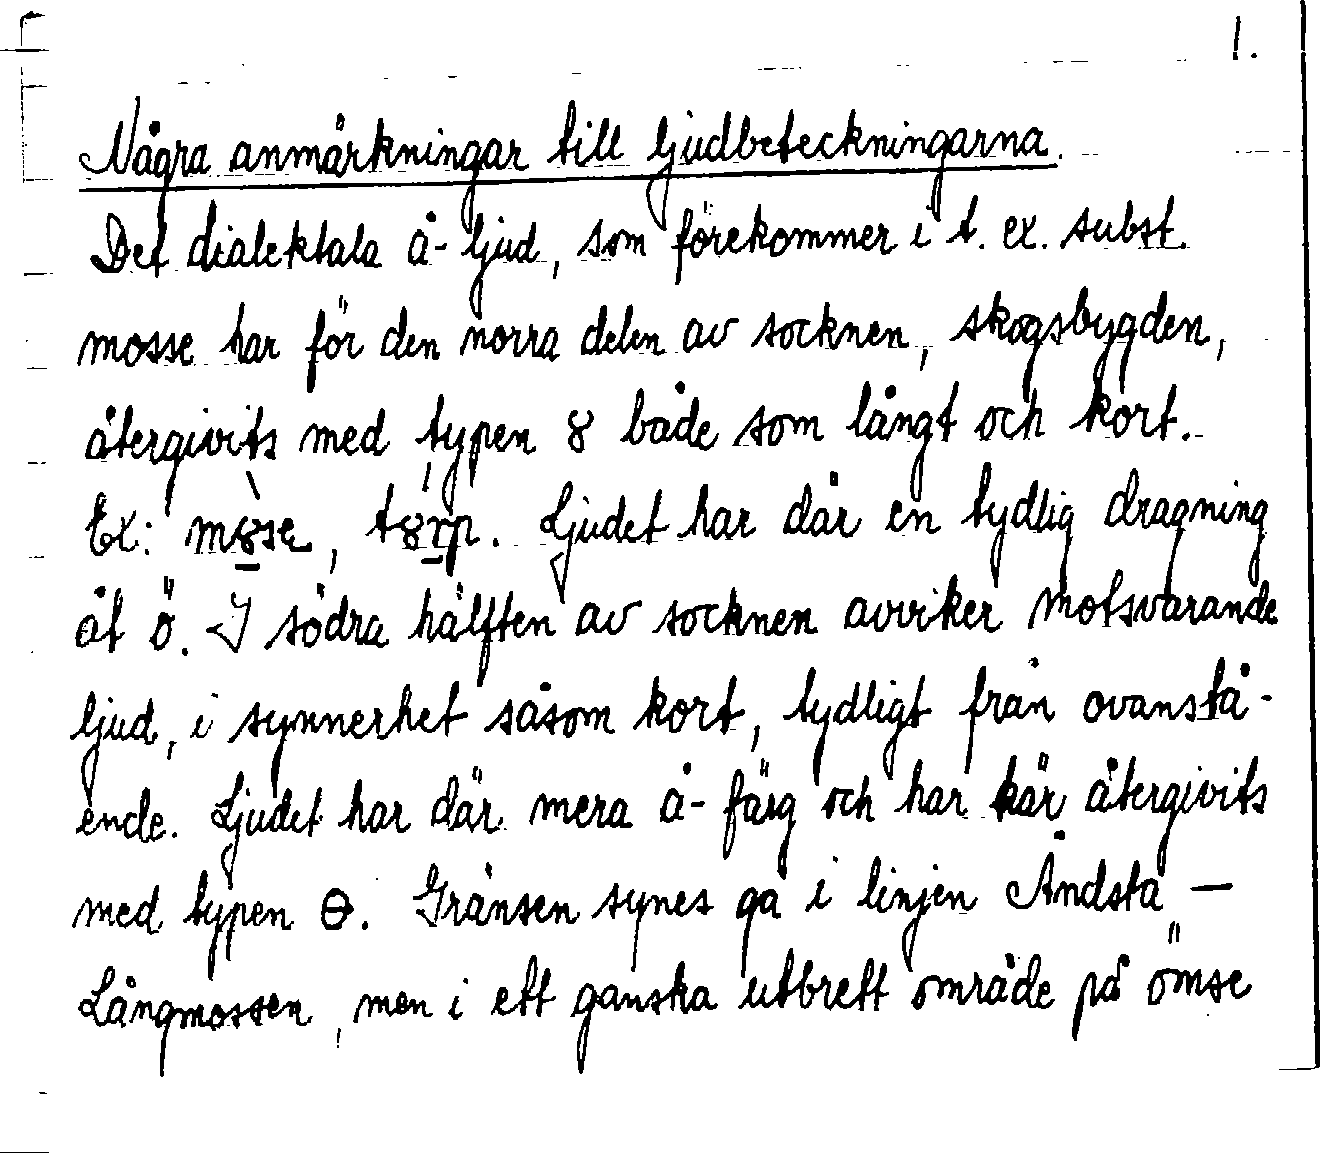 1.
Några anmärkningar till ljudbeteckningarna.
Det dialektala å-ljud, som förekommer i t. ex. subst.
mosse har för den norra delen av socknen, skogsbygden,
återgivits med typen 8 både som långt och kort.
Ex: m8̀se, t8́rp. Ljudet har där en tydlig dragning
åt ö. I södra hälften av socknen avviker motsvarande
ljud, i synnerhet såsom kort, tydligt från ovanstå-
ende. Ljudet har där mera å-färg och har här återgivits
med typen ɵ. Gränsen synes gå i linjen Åndsta —
Långmossen, men i ett ganska utbrett område på ömse